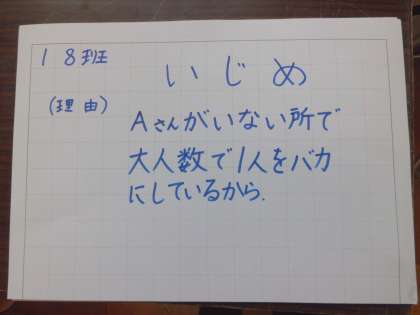 18班
いじめ
(理由)
Aさんがいない所で
大人数で1人をバカ
にしているから.